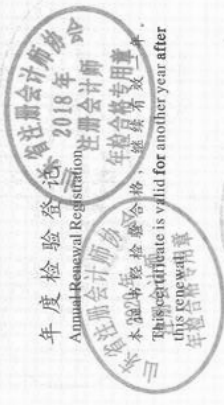 年度检验登记
Annual Renewal Registration
本证书经检验合格，继续有效一年。
This certificate is valid for another year after
this renewal.
山东省注册会计师协会
2018年
注册会计师
年检合格专用章
山东省注册会计师协会
2020年
注册会计师
年检合格专用章